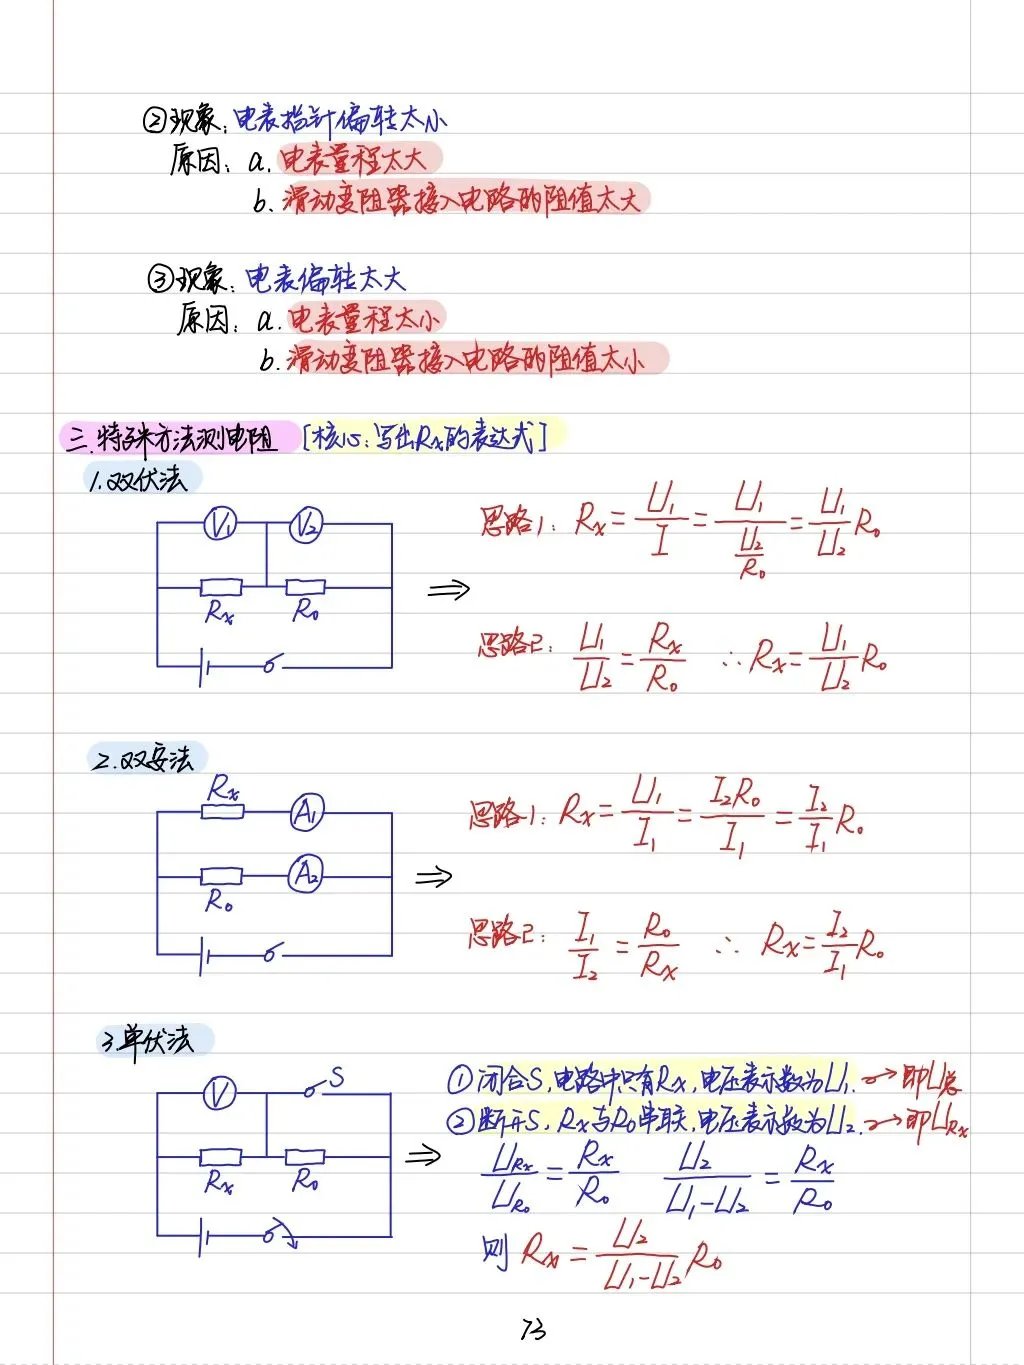 ②现象：电表指针偏转太小
原因：a.电表量程太大
b.滑动变阻器接入电路的阻值太大
③现象：电表偏转太大
原因：a.电表量程太小
b.滑动变阻器接入电路的阻值太小
三.特殊方法测电阻 [核心：写出Rx的表达式]
1.双伏法
V₁ V₂
Rx R₀
思路1：Rx=U₁/I=U₁/(U₂/R₀)=U₁/U₂ R₀
思路2：U₁/U₂=Rx/R₀ ∴Rx=U₁/U₂ R₀
2.双安法
Rx A₁
R₀ A₂
思路1：Rx=U₁/I₁=I₂R₀/I₁=I₂/I₁ R₀
思路2：I₁/I₂=R₀/Rx ∴ Rx=I₂/I₁ R₀
3.单伏法
V S
Rx R₀
①闭合S,电路中只有Rx,电压表示数为U₁.→即U总
②断开S,Rx与R₀串联,电压表示数为U₂.→即URx
URx/UR₀=Rx/R₀ U₂/(U₁-U₂)=Rx/R₀
则 Rx=U₂/(U₁-U₂) R₀
73